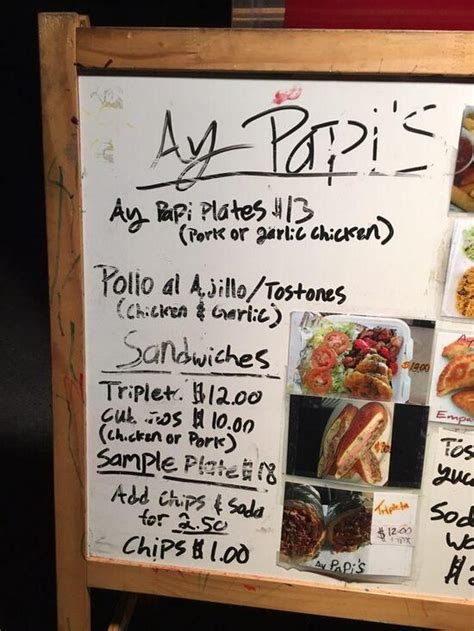 Ay Papi's
Ay Papi Plates $13
(Pork or garlic chicken)
Pollo al Ajillo/Tostones
(Chicken & Garlic)
Sandwiches
Triplet $12.00
$10.00
(chicken or Pork)
Sample Plate $18
Add Chips & Soda
for 2.50
Chips $1.00
Tripleta
$12.00
Ay PAPi'S
Empa
Tos
yuc
Sod
wa